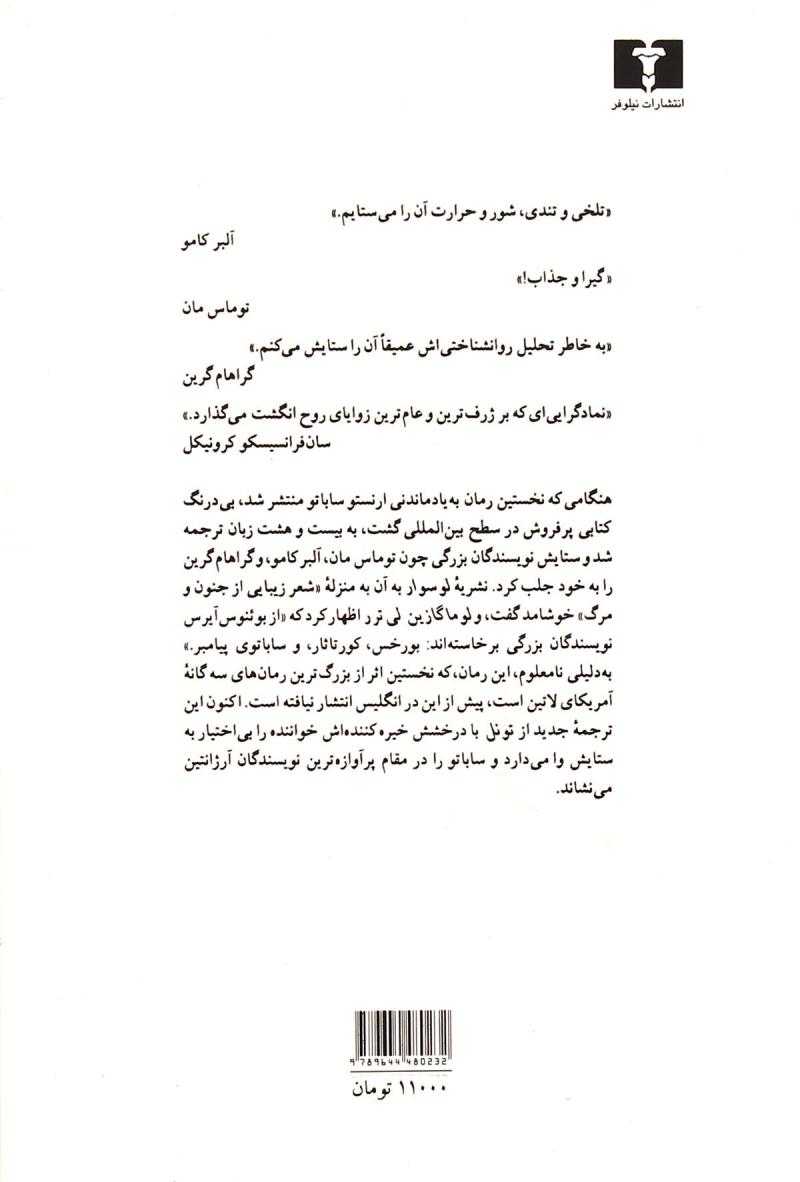 انتشارات نیلوفر
«تلخی و تندی، شور و حرارت آن را می‌ستایم.»
آلبر کامو
«گیرا و جذاب!»
توماس مان
«به خاطر تحلیل روانشناختی‌اش عمیقاً آن را ستایش می‌کنم.»
گراهام گرین
«نمادگرایی‌ای که بر ژرف‌ترین و عام‌ترین زوایای روح انگشت می‌گذارد.»
سان‌فرانسیسکو کرونیکل
هنگامی که نخستین رمان به‌یادماندنی ارنستو ساباتو منتشر شد، بی‌درنگ
کتابی پرفروش در سطح بین‌المللی گشت، به بیست و هشت زبان ترجمه
شد و ستایش نویسندگان بزرگی چون توماس مان، آلبر کامو، و گراهام گرین
را به خود جلب کرد. نشریهٔ لو سوار به آن به منزلهٔ «شعر زیبایی از جنون و
مرگ» خوشامد گفت، و لو ماگازین لی ترر اظهار کرد که «از بوئنوس آیرس
نویسندگان بزرگی برخاسته‌اند: بورخس، کورتاثار، و ساباتوی پیامبر.»
به‌دلیلی نامعلوم، این رمان، که نخستین اثر از بزرگ‌ترین رمان‌های سه گانهٔ
آمریکای لاتین است، پیش از این در انگلیس انتشار نیافته است. اکنون این
ترجمهٔ جدید از تونل با درخشش خیره کننده‌اش خواننده را بی‌اختیار به
ستایش وا می‌دارد و ساباتو را در مقام پرآوازه‌ترین نویسندگان آرژانتین
می‌نشاند.
9 789644 480232
۱۱۰۰۰ تومان